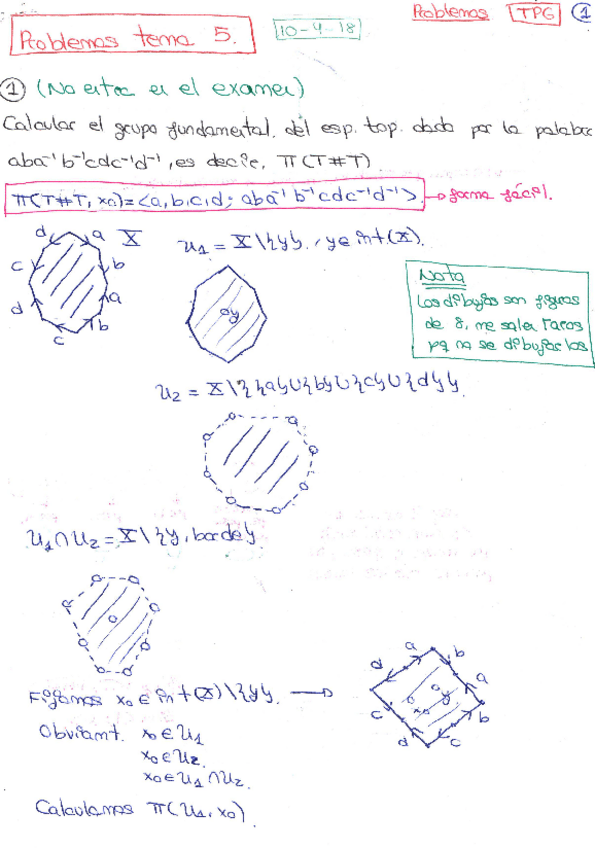 Problemas TPG 1
Problemas tema 5.
10-4-18
1 (No entra en el examen)
Calcular el grupo fundamental del esp. top. dado por la palabra
aba⁻¹b⁻¹cdc⁻¹d⁻¹, es decir, π(T#T)
π(T#T, x₀)=<a,b,c,d; aba⁻¹b⁻¹cdc⁻¹d⁻¹> → forma fácil.
d a X
c b
d a
c b
U₁ = X\{y}, y∈int(X).
y
Nota
Los dibujos son figuras
de 8, me salen raros
pq no se dibujarlos
U₂ = X\{{a}∪{b}∪{c}∪{d}}.
U₁∩U₂ = X\{y, borde}.
Fijamos x₀∈int(X)\{y}. →
a b
d a
y
x₀
c b
d c
Obviamt. x₀∈U₁
x₀∈U₂
x₀∈U₁∩U₂.
Calculamos π(U₁, x₀).